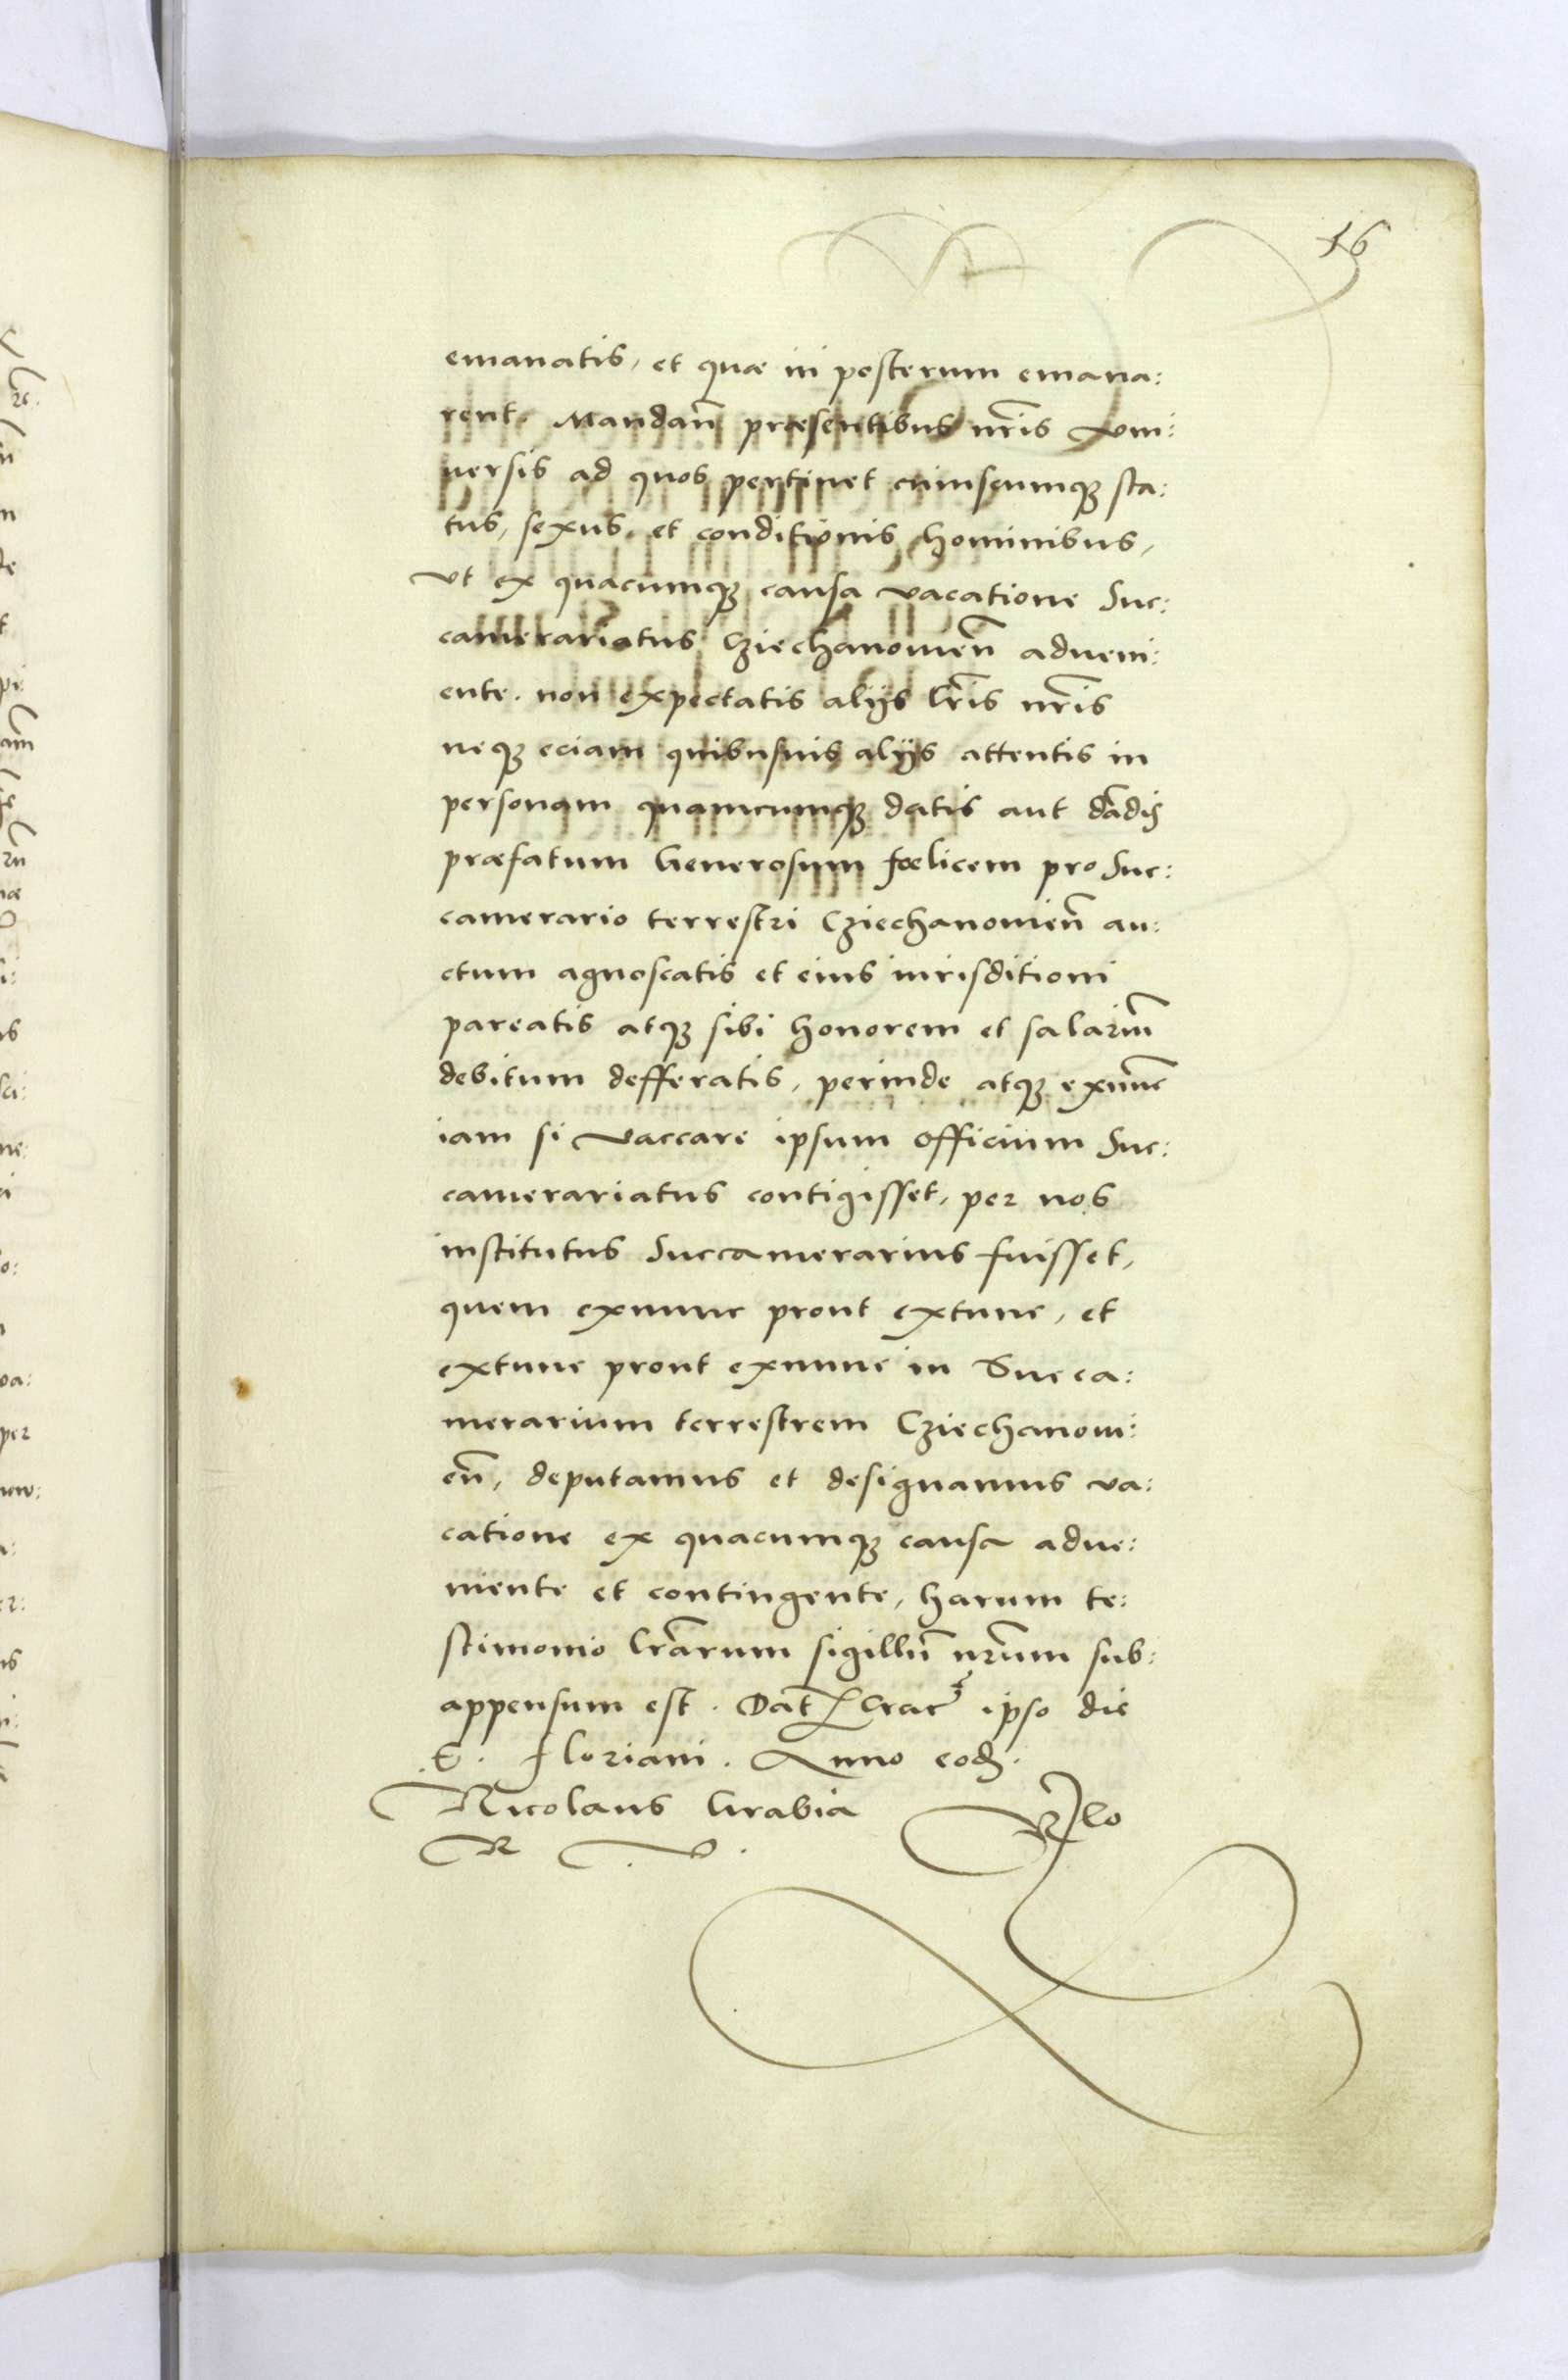 16
emanatis, et quæ in posterum emana:
rent. Mandan̄ præsentibus nr̄is vni:
uersis ad quos pertinet cuiuscumqꝫ sta:
tus, sexus, et conditionis hominibus,
vt ex quacumqꝫ causa vacatione Suc:
camerariatus Cziechanouien̄ adueni:
ente. non expectatis alijs lr̄is nr̄is
neqꝫ eciam quibusuis alijs attentis in
personam quamcumqꝫ datis aut dādis
præfatum Generosum fœlicem pro Suc:
camerario terrestri Cziechanouien̄ au:
ctum agnoscatis et eius iurisditioni
pareatis atqꝫ sibi honorem et salariū
debitum defferatis, perinde atqꝫ exnūc
iam si vaccare ipsum officium Suc:
camerariatus contigisset, per nos
institutus Succamerarius fuisset,
quem exnunc prout extunc, et
extunc prout exnunc in Succa:
merarium terrestrem Cziechanoui:
en̄, deputamus et designamus va:
catione ex quacumqꝫ causa adue:
niente et contingente, harum te:
stimonio lrārum sigillū nr̄um sub:
appensum est. Dat̄ Crac̄ ipso die
S. Floriani. Anno eod.
Nicolaus Grabia
R V.